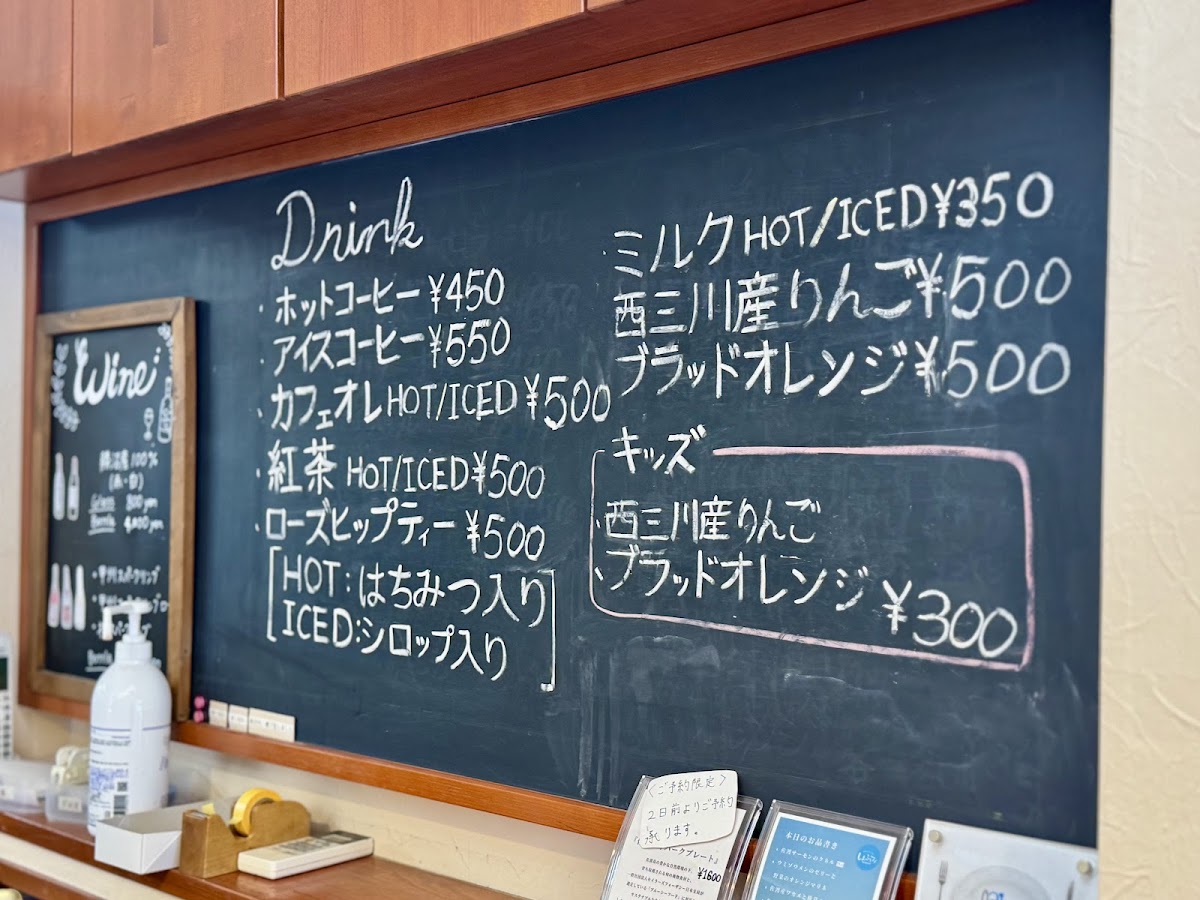 Drink
・ホットコーヒー ¥450
・アイスコーヒー ¥550
・カフェオレ HOT/ICED ¥500
・紅茶 HOT/ICED ¥500
・ローズヒップティー ¥500
[HOT:はちみつ入り
ICED:シロップ入り]
・ミルク HOT/ICED ¥350
・西三川産りんご ¥500
・ブラッドオレンジ ¥500
キッズ
・西三川産りんご
・ブラッドオレンジ ¥300
Wine
100%
(赤・白)
Glass 800 yen
Bottle 4,000 yen
〈ご予約限定〉
2日前よりご予約
承ります。
¥1600
本日のお品書き